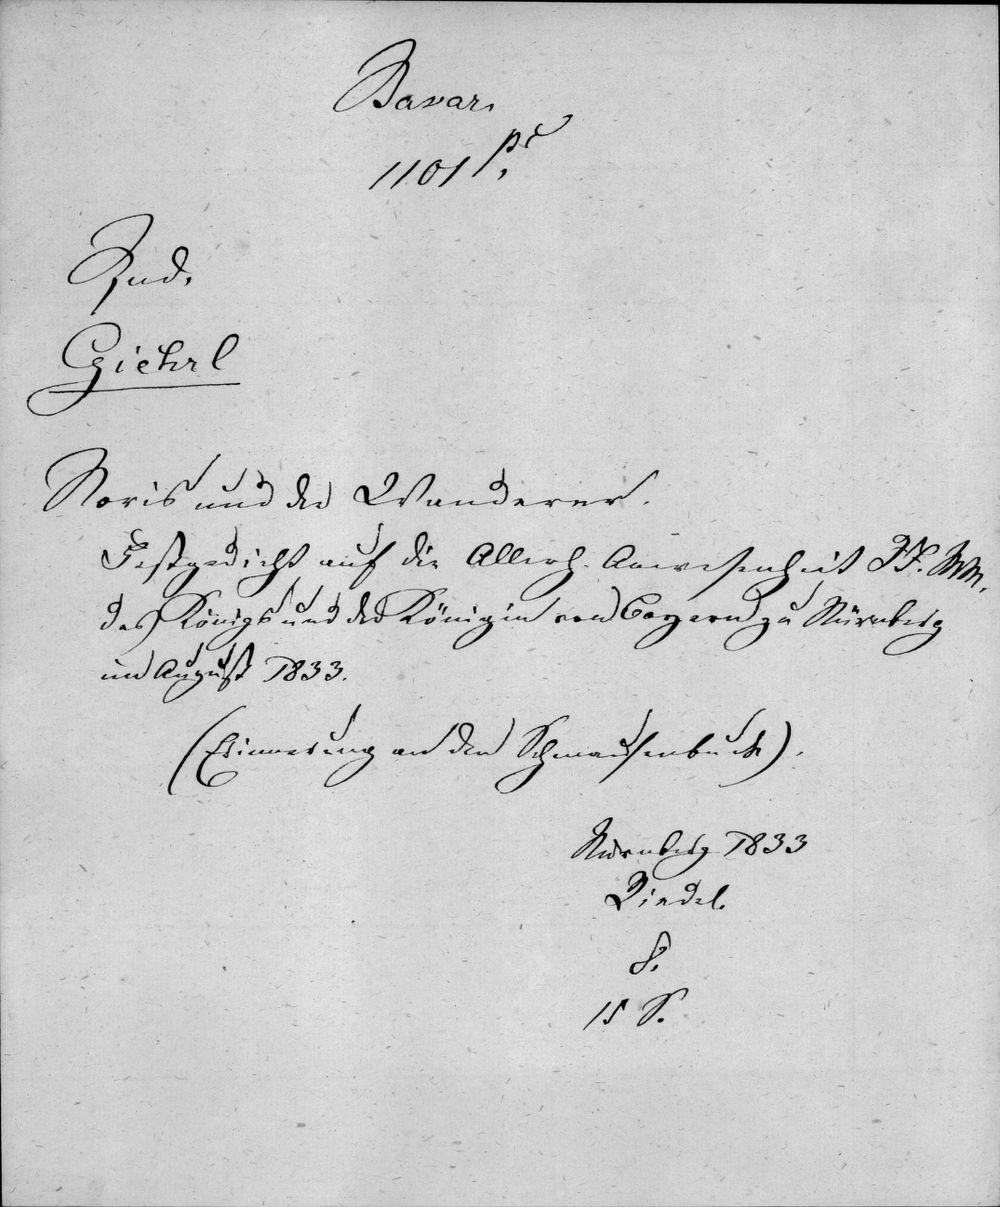 Bavar.
1101 pc.
Rud.
Giehrl
Noris und der Wanderer.
Festgedicht auf die Allerh. Anwesenheit JJ. MM.
des Königs und der Königin von Bayern zu Nürnberg
im August 1833.
(Erinnerung an den Schmausenbuck).
Nürnberg 1833
Riedel.
8.
15 S.